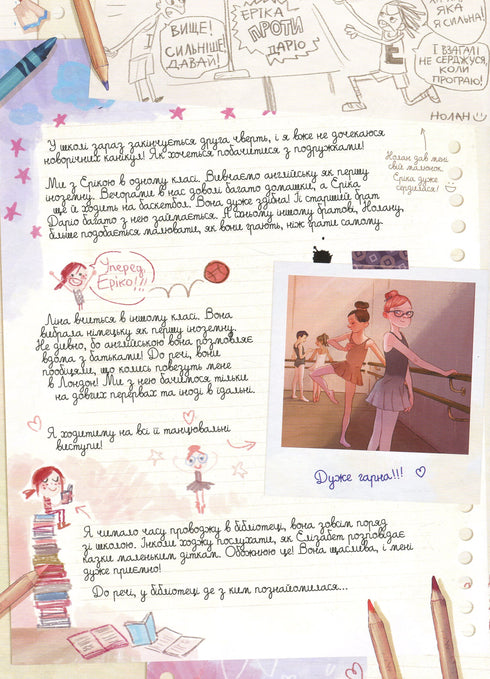 ВИЩЕ!
СИЛЬНІШЕ!
ДАВАЙ!
ЕРІКА
ПРОТИ
ДАРІО
ЯКА
Я СИЛЬНА!
І ВЗАГАЛІ
НЕ СЕРДЖУСЯ,
КОЛИ
ПРОГРАЮ!
E
НОЛАН
Нолан дав мені
свій малюнок.
Еріка дуже
сердилася!
У школі зараз закінчується друга чверть, і я вже не дочекаюся
новорічних канікул! Як хочеться побачитися з подружками!
Ми з Ерікою в одному класі. Вивчаємо англійську як першу
іноземну. Вечорами в нас доволі багато домашки, а Еріка
ще й ходить на баскетбол. Вона дуже здібна! Її старший брат
Даріо багато з нею займається. А їхньому іншому братові, Нолану,
більше подобається малювати, як вони грають, ніж грати самому.
Уперед,
Еріко!!!
Ліна вчиться в іншому класі. Вона
вибрала німецьку як першу іноземну.
Не дивно, бо англійською вона розмовляє
вдома з батьками! До речі, вони
пообіцяли, що колись повезуть мене
в Лондон! Ми з нею бачимося тільки
на довгих перервах та іноді в їдальні.
Я ходитиму на всі її танцювальні
виступи!
Дуже гарна!!!
Я чимало часу проводжу в бібліотеці, вона зовсім поряд
зі школою. Інколи ходжу послухати, як Елізабет розповідає
казки маленьким діткам. Обожнюю це! Вона щаслива, і мені
дуже приємно!
До речі, у бібліотеці де з ким познайомилася...